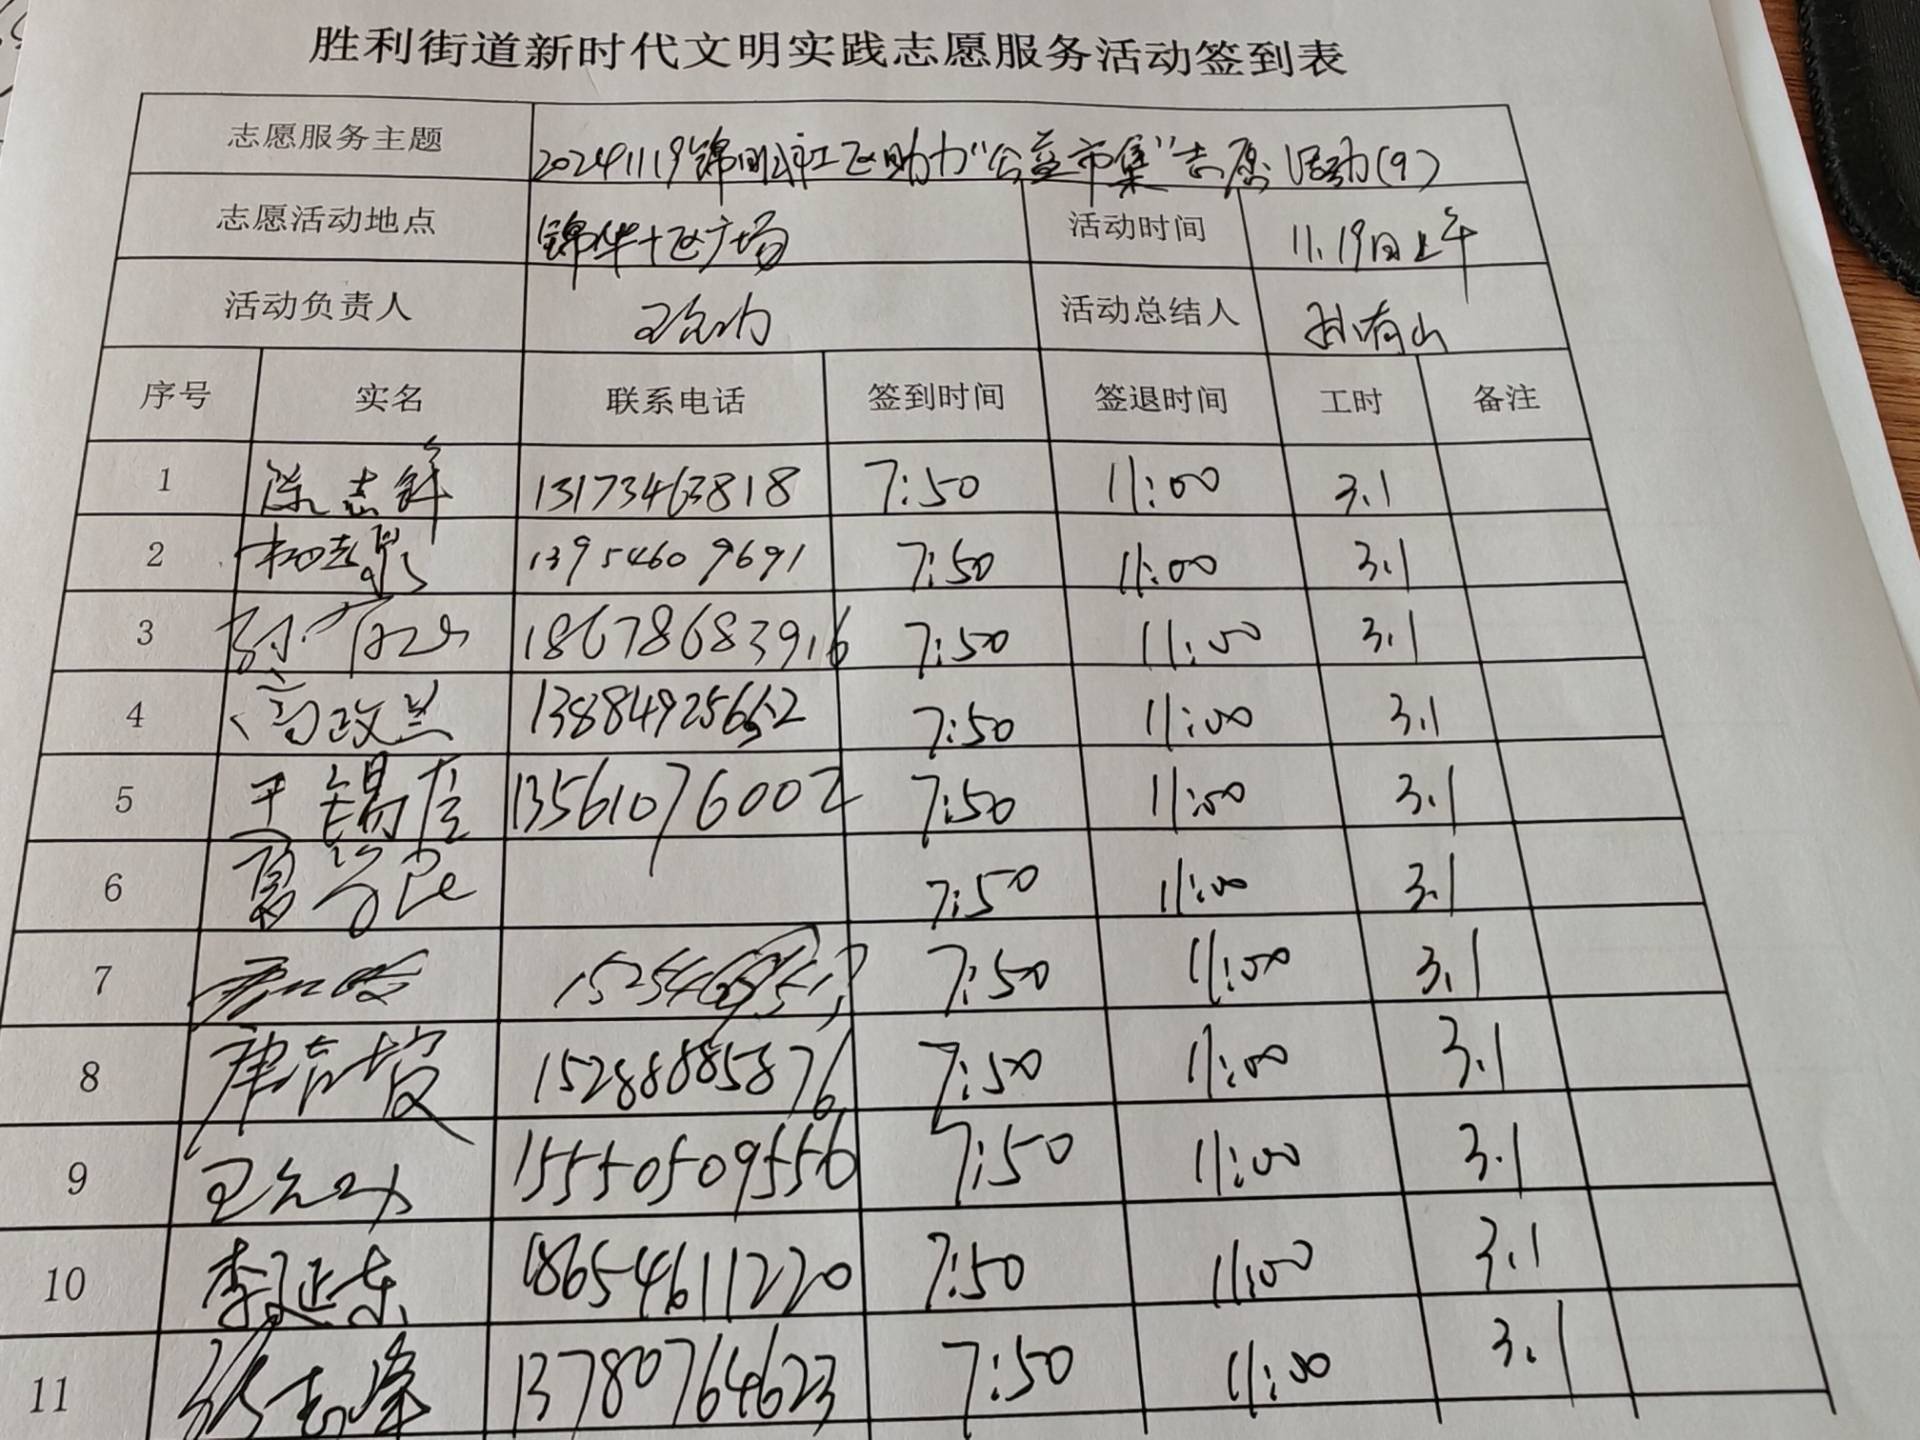 胜利街道新时代文明实践志愿服务活动签到表
志愿服务主题 20241119锦明社工区助力“公益市集”志愿活动(9)
志愿活动地点 锦华十区广场 活动时间 11.19日上午
活动负责人 活动总结人 孙有山
序号 实名 联系电话 签到时间 签退时间 工时 备注
1 陈志锋 13173463818 7:50 11:00 3.1
2 13954609691 7:50 11:00 3.1
3 孙有山 18678683916 7:50 11:00 3.1
4 高政兰 13884925662 7:50 11:00 3.1
5 王锡彦 13561076002 7:50 11:00 3.1
6 7:50 11:00 3.1
7 7:50 11:00 3.1
8 15288885876 7:50 11:00 3.1
9 15550509556 7:50 11:00 3.1
10 李延东 18654611220 7:50 11:00 3.1
11 张志峰 13780764623 7:50 11:00 3.1